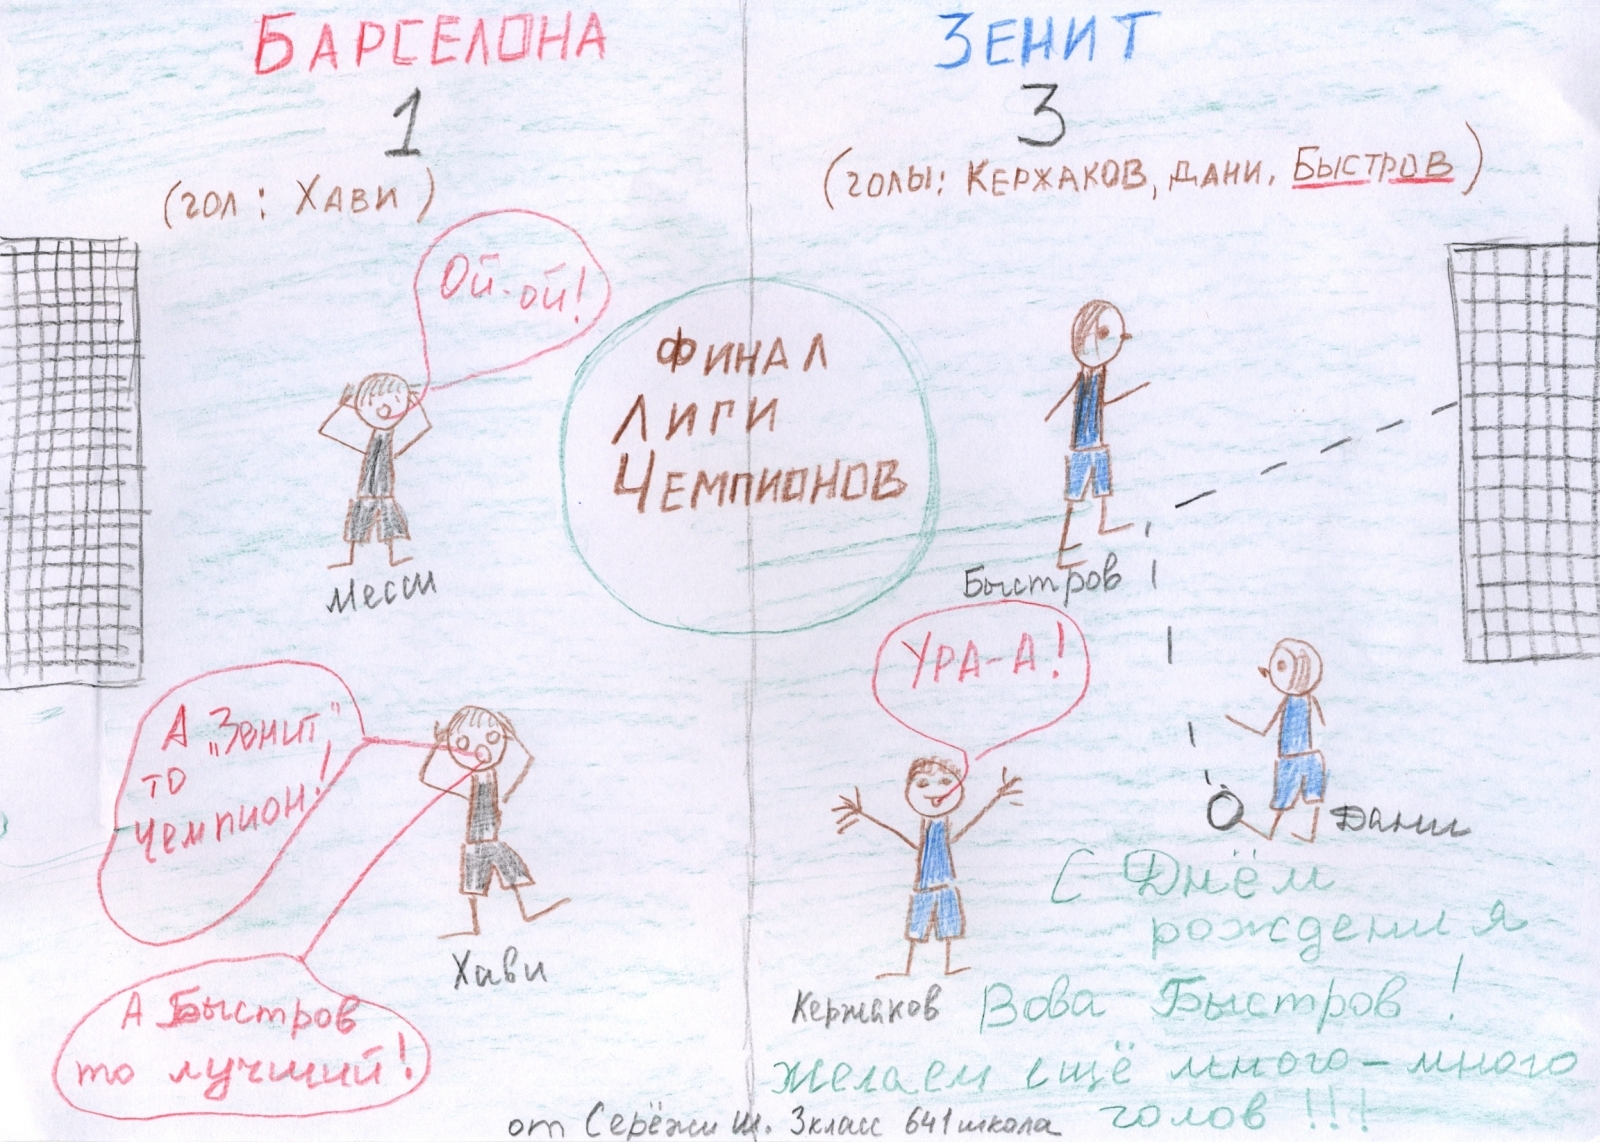 БАРСЕЛОНА
ЗЕНИТ
1
3
(гол: Хави)
(голы: Кержаков, Дани, Быстров)
Ой-ой!
Финал
Лиги
Чемпионов
Месси
Быстров
Ура-а!
А „Зенит"
то
чемпион!
Дани
Хави
А Быстров
то лучший!
Кержаков
С Днём
рождения
Вова Быстров!
желаем ещё много-много
голов!!!
от Серёжи Ш. 3 класс 641 школа